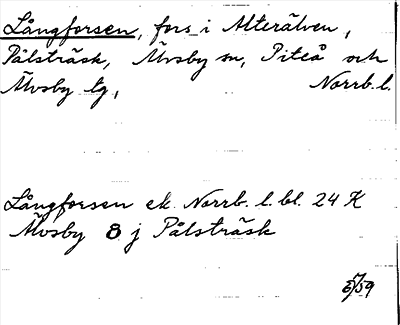 Långforsen, fors i Alterälven,
Pålsträsk, Älvsby sn, Piteå och
Älvsby tg, Norrb. l.
Långforsen ek. Norrb. l. bl. 24 K
Älvsby 8 j Pålsträsk